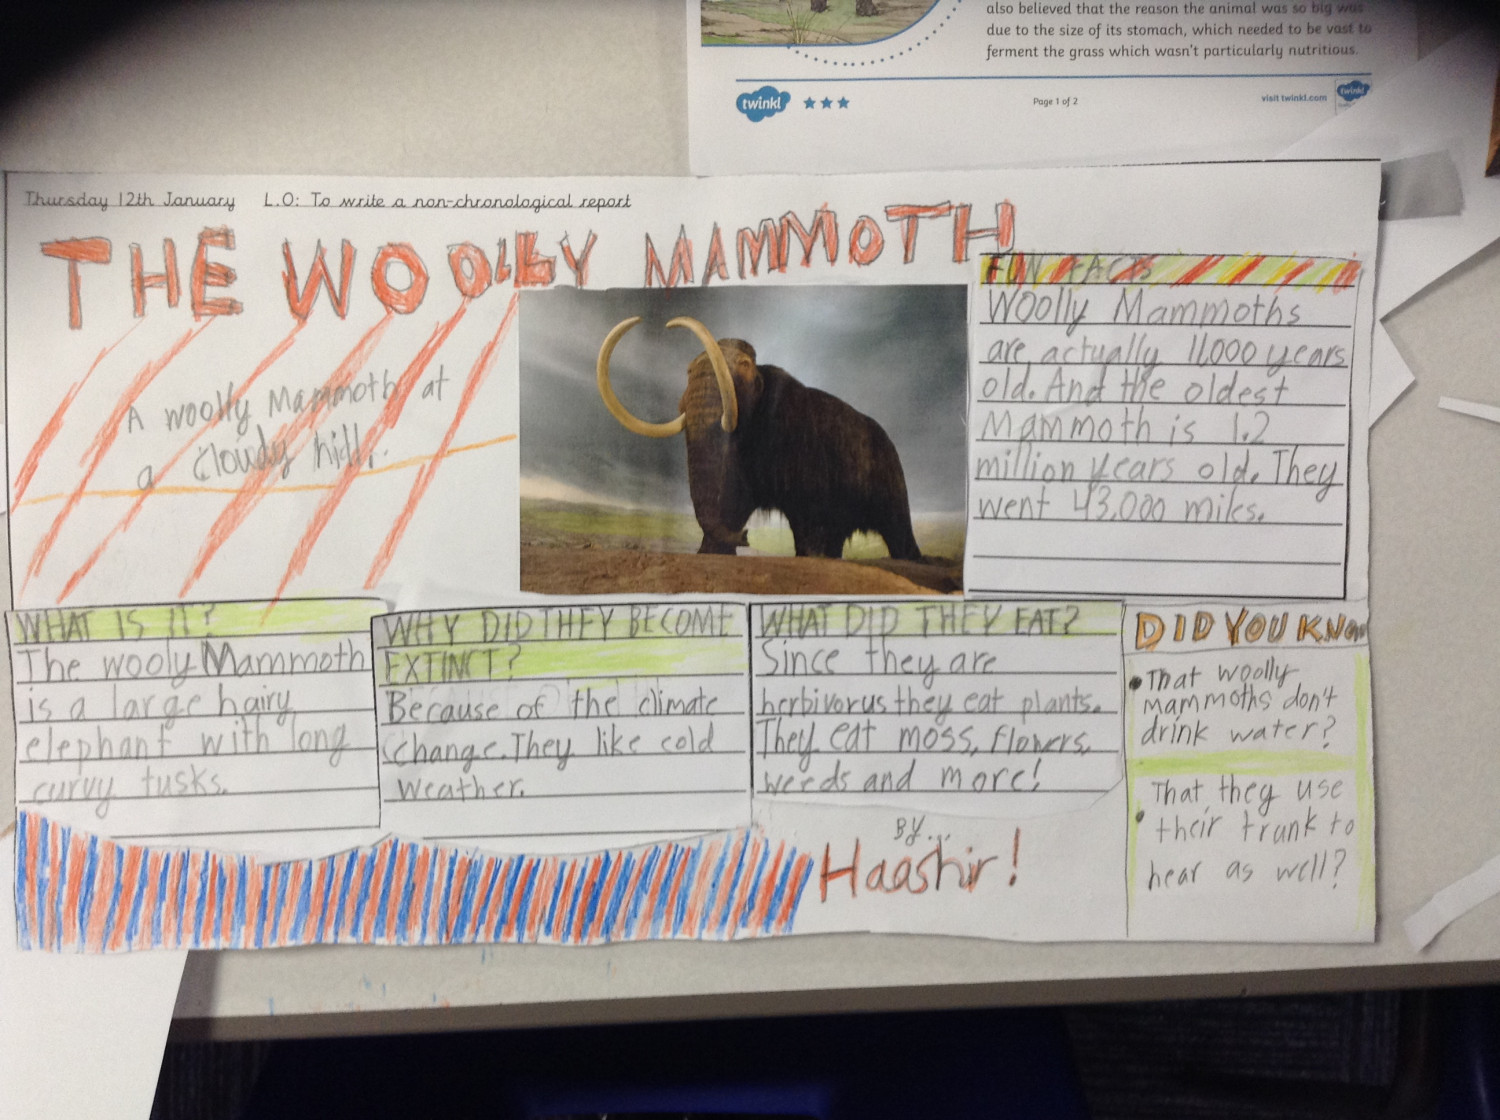 also believed that the reason the animal was so big was
due to the size of its stomach, which needed to be vast to
ferment the grass which wasn't particularly nutritious.
twinkl
Page 1 of 2
visit twinkl.com
twinkl
Thursday 12th January L.O: To write a non-chronological report
THE WOOLLY MAMMOTH
A woolly Mammoth at
a cloudy hill.
FUN FACTS
Woolly Mammoths
are actually 11,000 years
old. And the oldest
Mammoth is 1.2
million years old. They
went 43,000 miles.
WHAT IS IT?
The wooly Mammoth
is a large hairy
elephant with long
curvy tusks.
WHY DID THEY BECOME
EXTINCT?
Because of the climate
change. They like cold
weather.
WHAT DID THEY EAT?
Since they are
herbivorus they eat plants.
They eat moss, flowers,
weeds and more!
DID YOU KNOW
• That woolly
mammoths don't
drink water?
• That they use
their trunk to
hear as well?
BY...
Haashir!